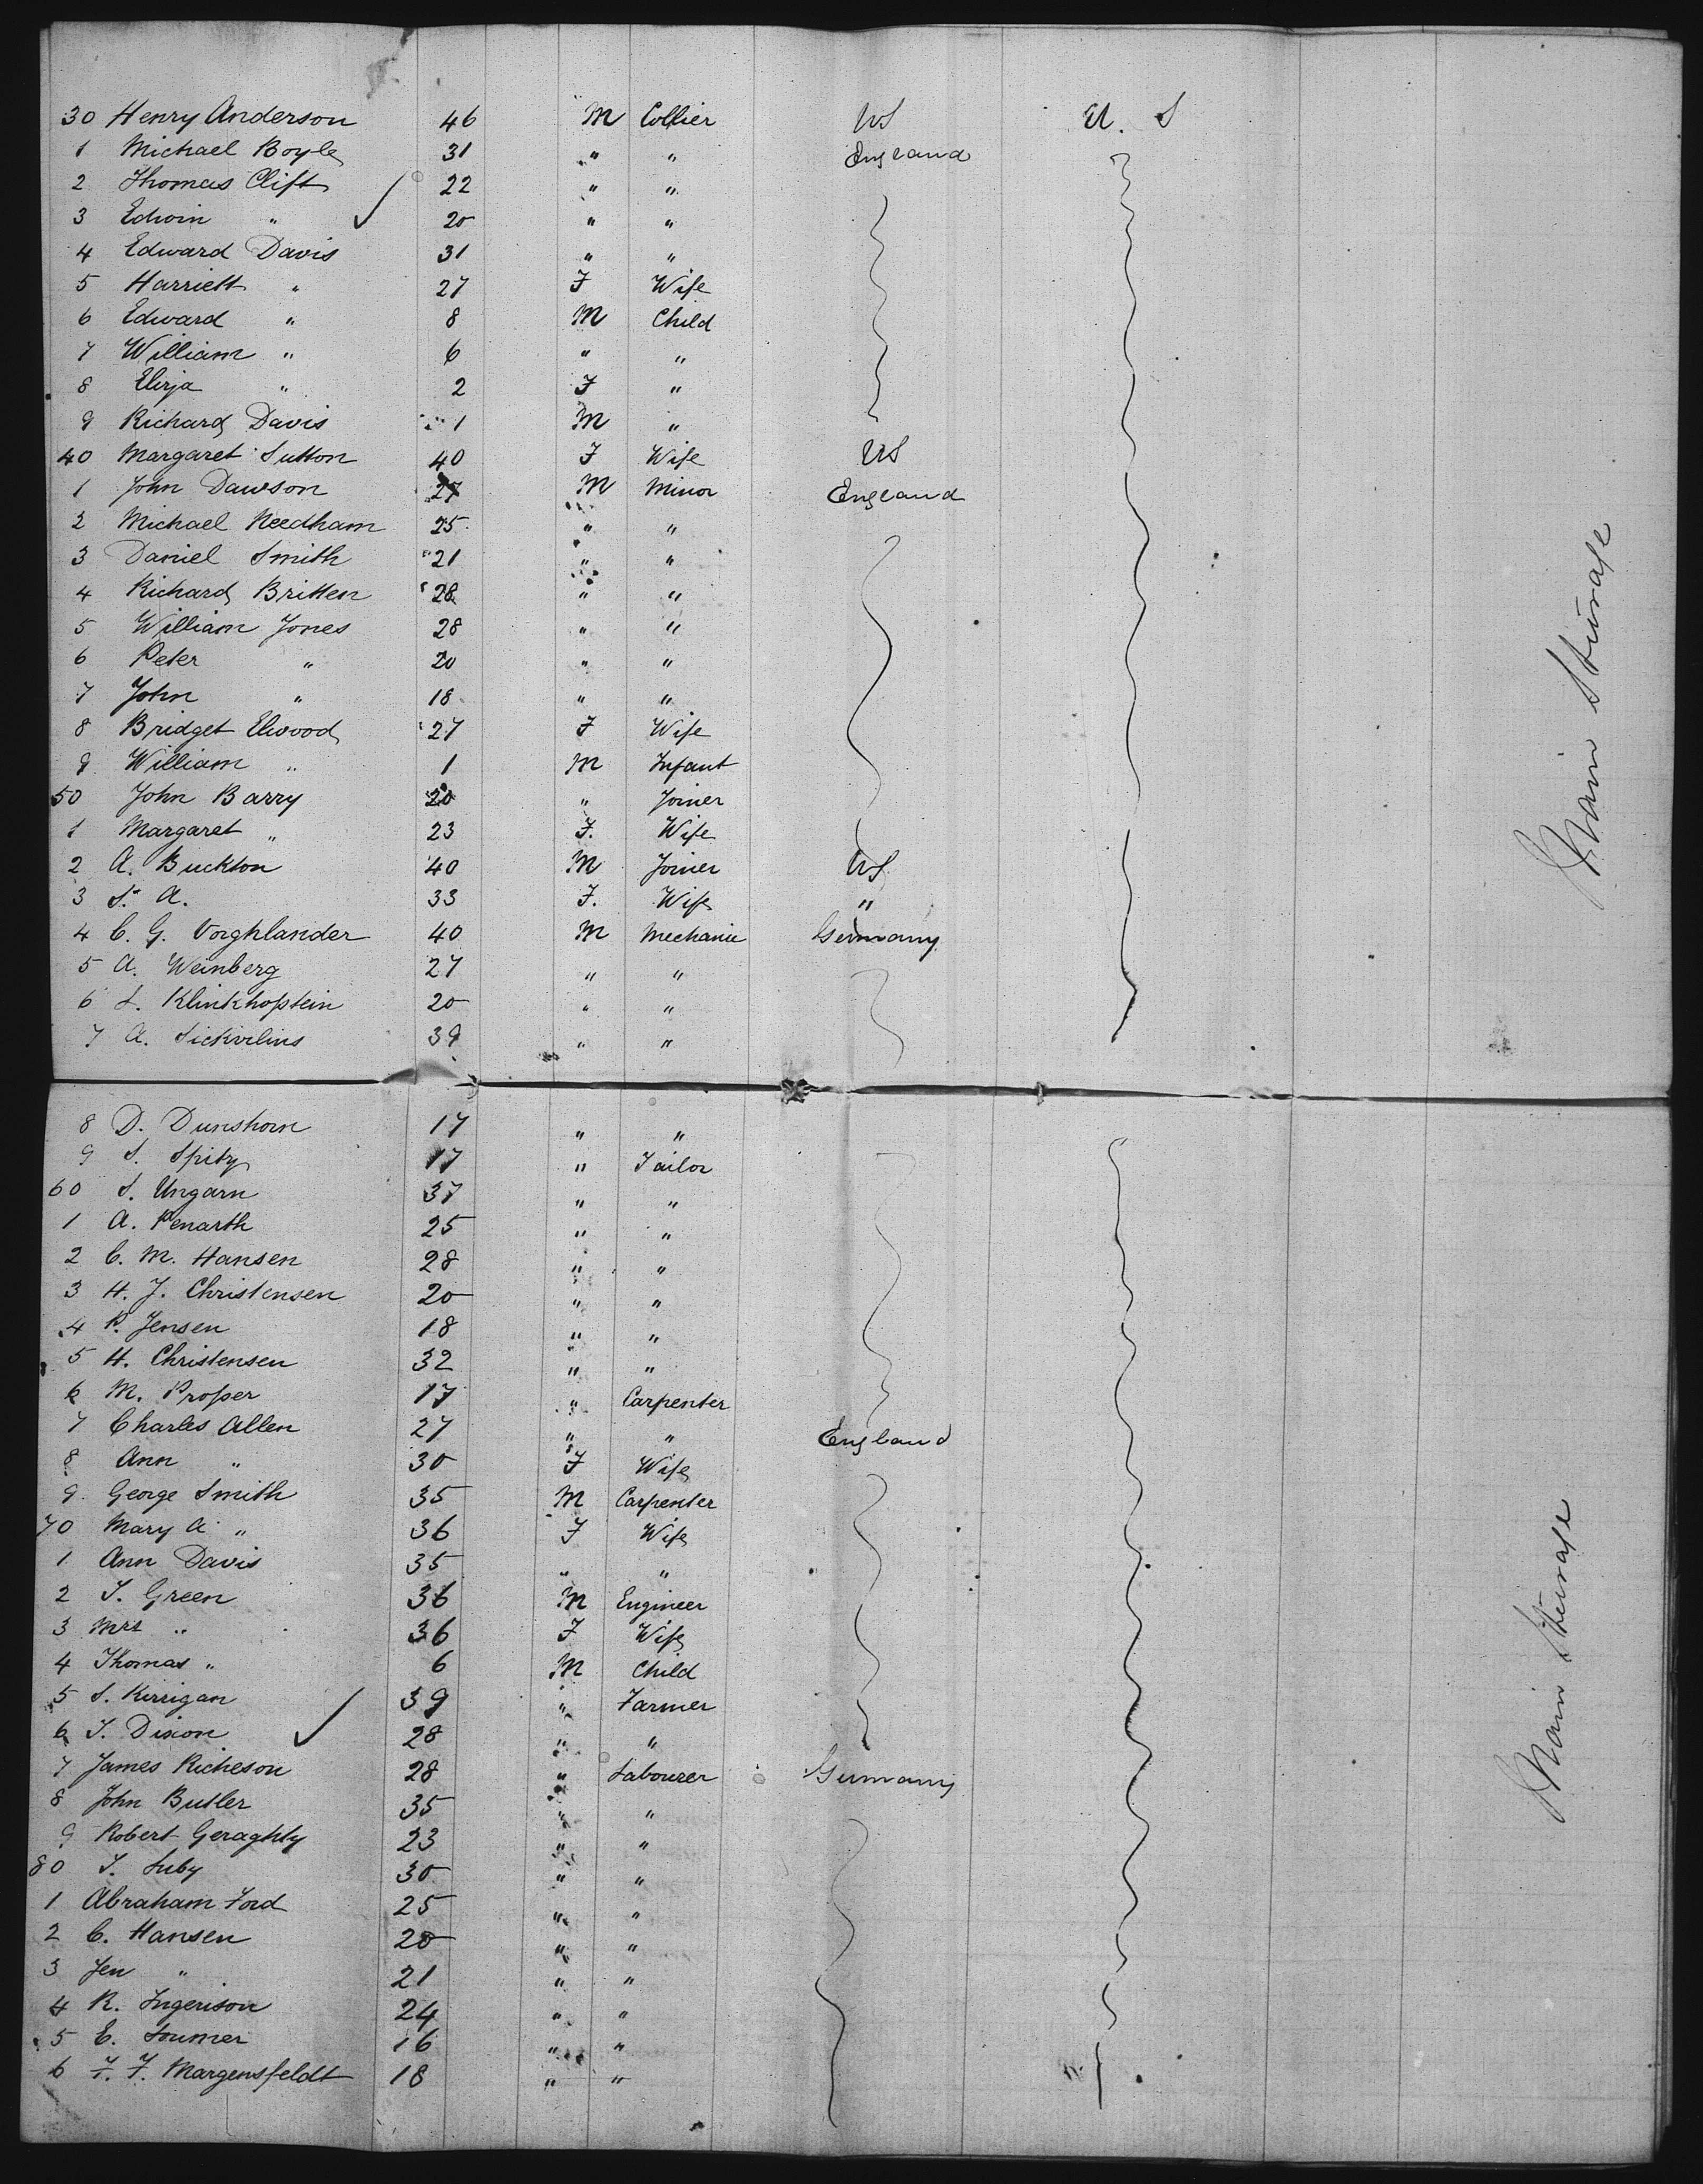 30 Henry Anderson 46 M Collier US U. S
1 Michael Boyle 31 " " England
2 Thomas Clift 22 " "
3 Edwin " 20 " "
4 Edward Davis 31 " "
5 Harriett " 27 F Wife
6 Edward " 8 M Child
7 William " 6 " "
8 Eliza " 2 F "
9 Richard Davis 1 M "
40 Margaret Sutton 40 F Wife US
1 John Dawson 27 M Minor England
2 Michael Needham 25 " "
3 Daniel Smith 21 " "
4 Richard Britten 28 " "
5 William Jones 28 " "
6 Peter " 20 " "
7 John " 18 " "
8 Bridget Elwood 27 F Wife
9 William " 1 M Infant
50 John Barry 20 " Joiner
1 Margaret " 23 F. Wife
2 A. Buckton 40 M Joiner US
3 S. A. 33 F. Wife "
4 C. G. Voighlander 40 M Mechanic Germany
5 A. Weinberg 27 " "
6 L. Klinkhofstein 20 " "
7 A. Sickvilins 39 " "
8 D. Dunshorn 17 " "
9 S. Spitz 17 " Tailor
60 S. Ungarn 37 " "
1 A. Penarth 25 " "
2 C. M. Hansen 28 " "
3 H. J. Christensen 20 " "
4 P. Jensen 18 " "
5 H. Christensen 32 " "
6 M. Prosser 17 " Carpenter
7 Charles Allen 27 " " England
8 Ann " 30 F Wife
9 George Smith 35 M Carpenter
70 Mary A " 36 F Wife
1 Ann Davis 35 " "
2 T. Green 36 M Engineer
3 Mrs " 36 F Wife
4 Thomas " 6 M Child
5 S. Kerrigan 39 " Farmer
6 T. Dixon 28 " "
7 James Richeson 28 " Labourer Germany
8 John Butler 35 " "
9 Robert Geraghty 23 " "
80 T. Luby 30 " "
1 Abraham Ford 25 " "
2 C. Hansen 20 " "
3 Jen " 21 " "
4 R. Ingerison 24 " "
5 E. Soumer 16 " "
6 F. F. Margensfeldt 18 " "
Main Steerage
Main Steerage